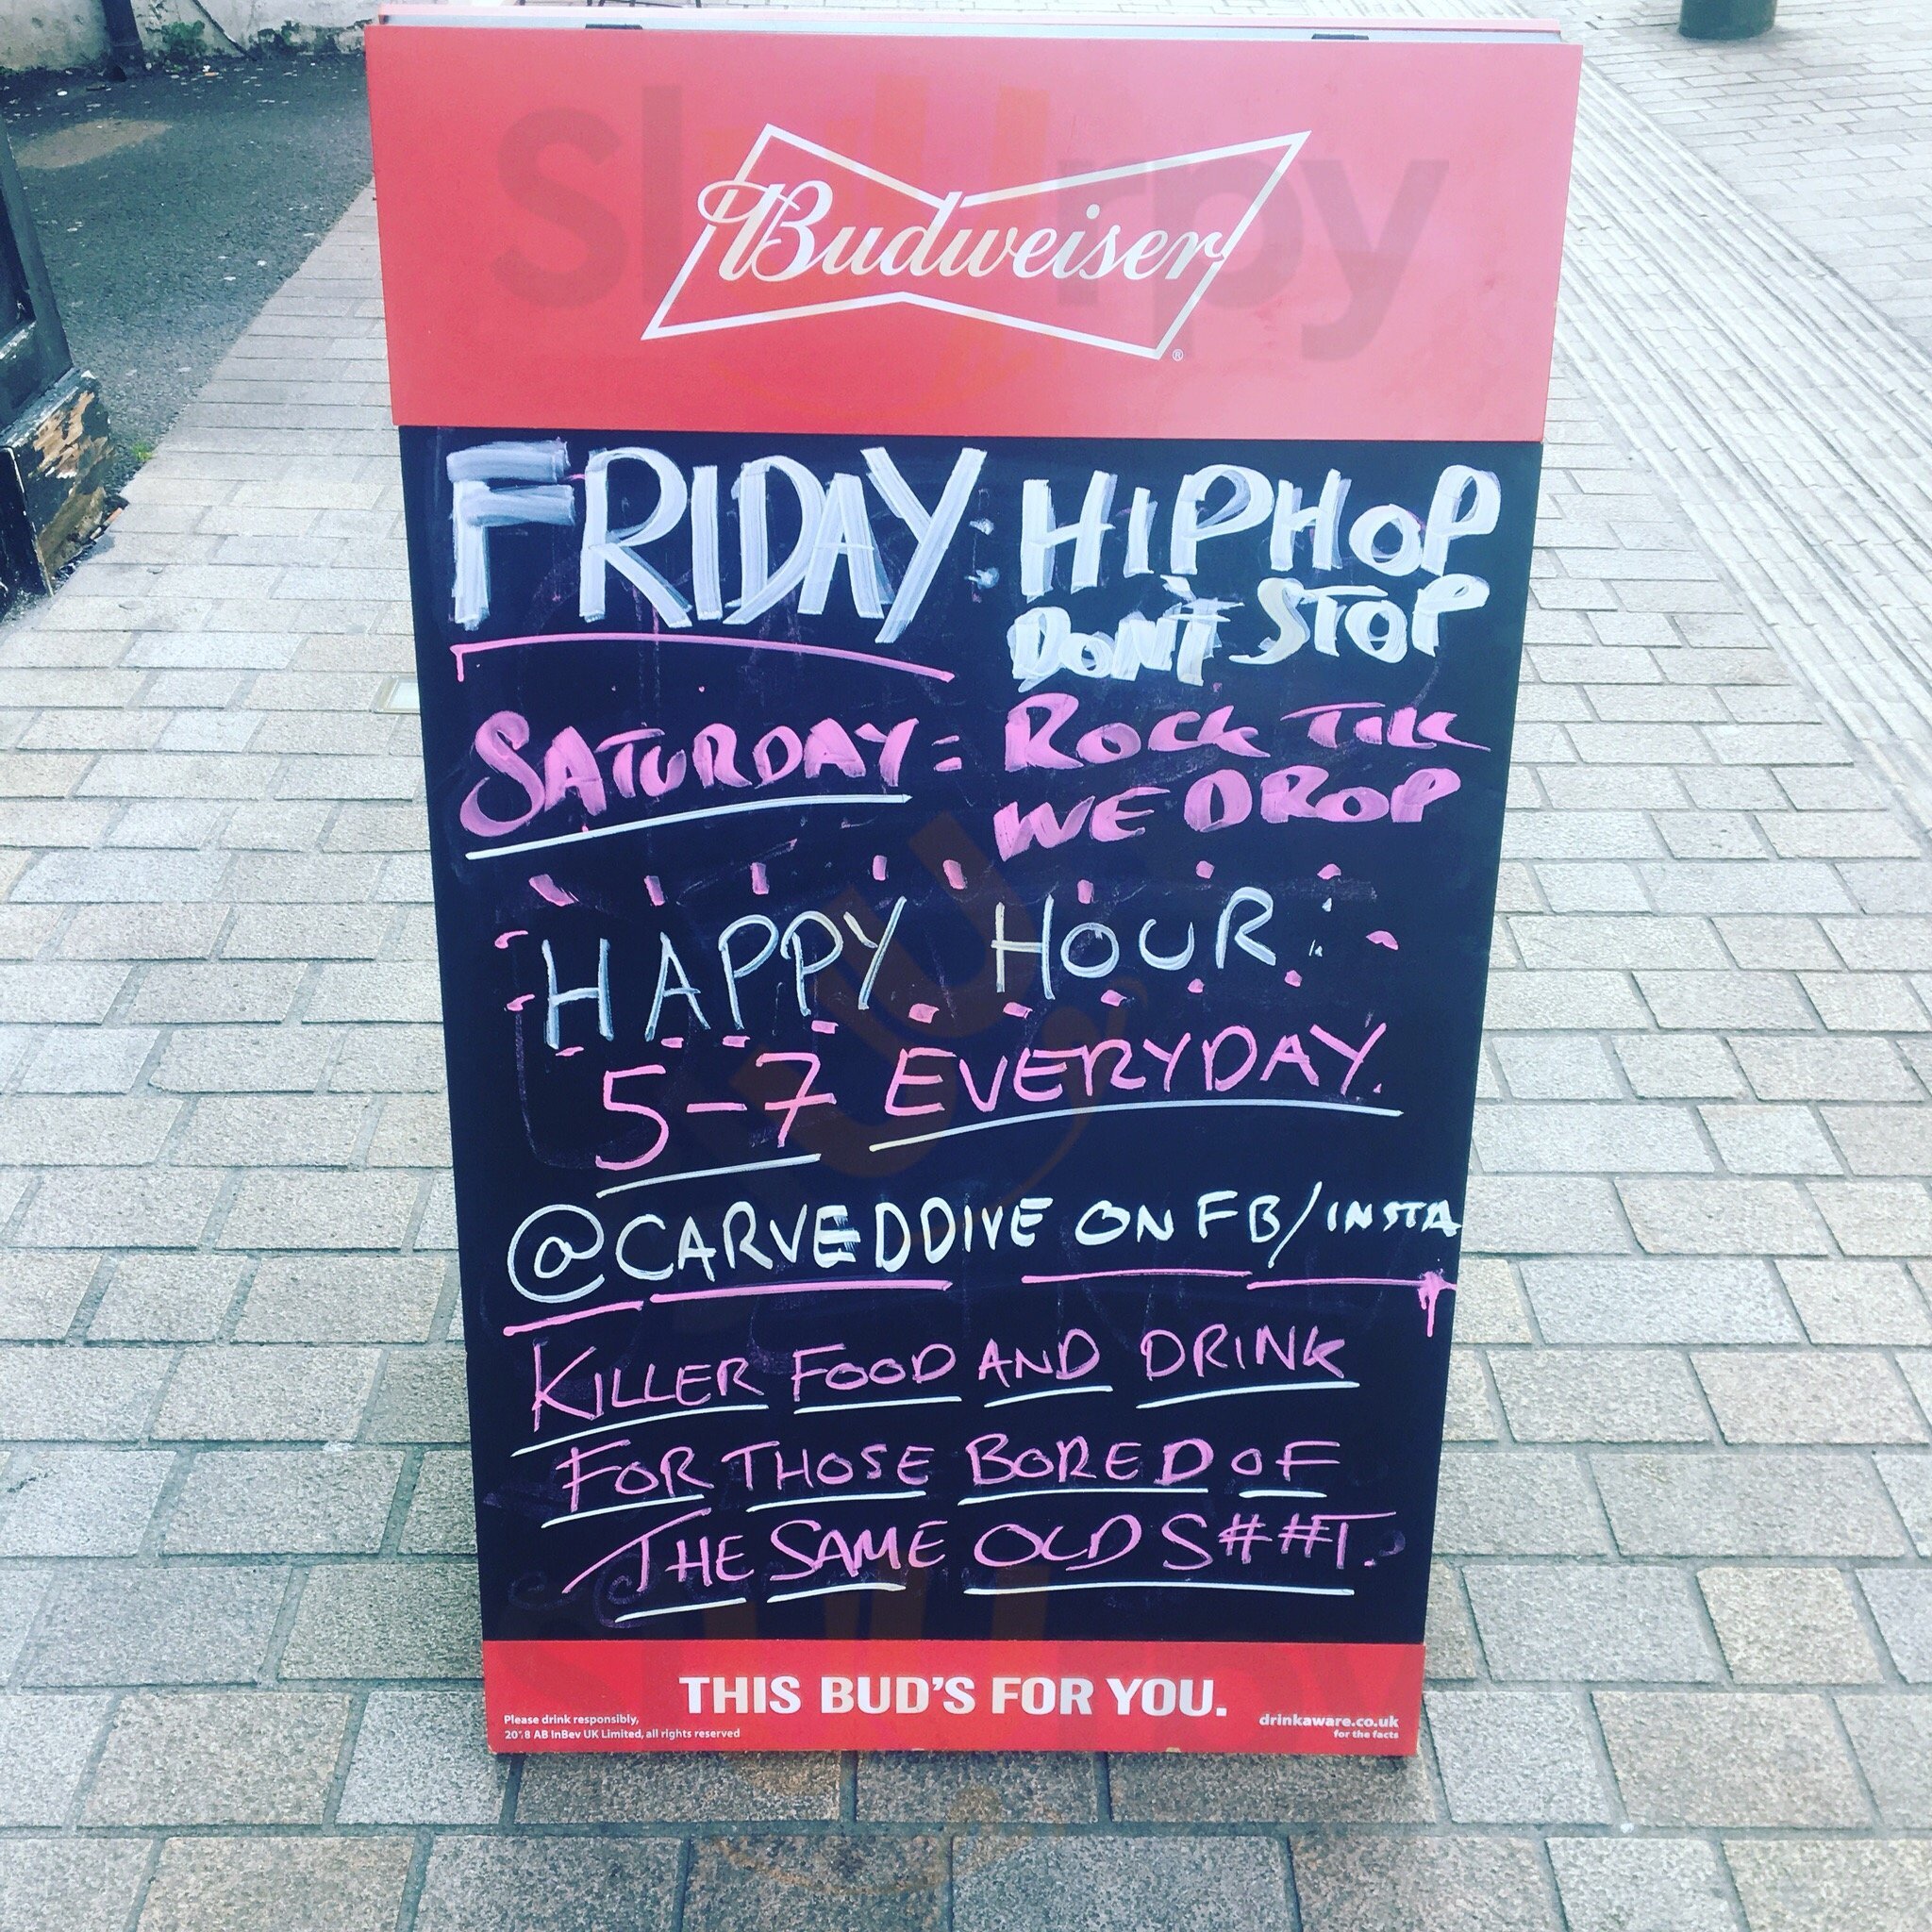 Budweiser
®
FRIDAY: HIPHOP
DON'T STOP
SATURDAY= ROCK TILL
WE DROP
HAPPY HOUR
5-7 EVERYDAY.
@CARVEDDIVE ON FB/INSTA
KILLER FOOD AND DRINK
FOR THOSE BORED OF
THE SAME OLD S##T.
THIS BUD'S FOR YOU.
Please drink responsibly,
2018 AB InBev UK Limited, all rights reserved
drinkaware.co.uk
for the facts
Slurpy